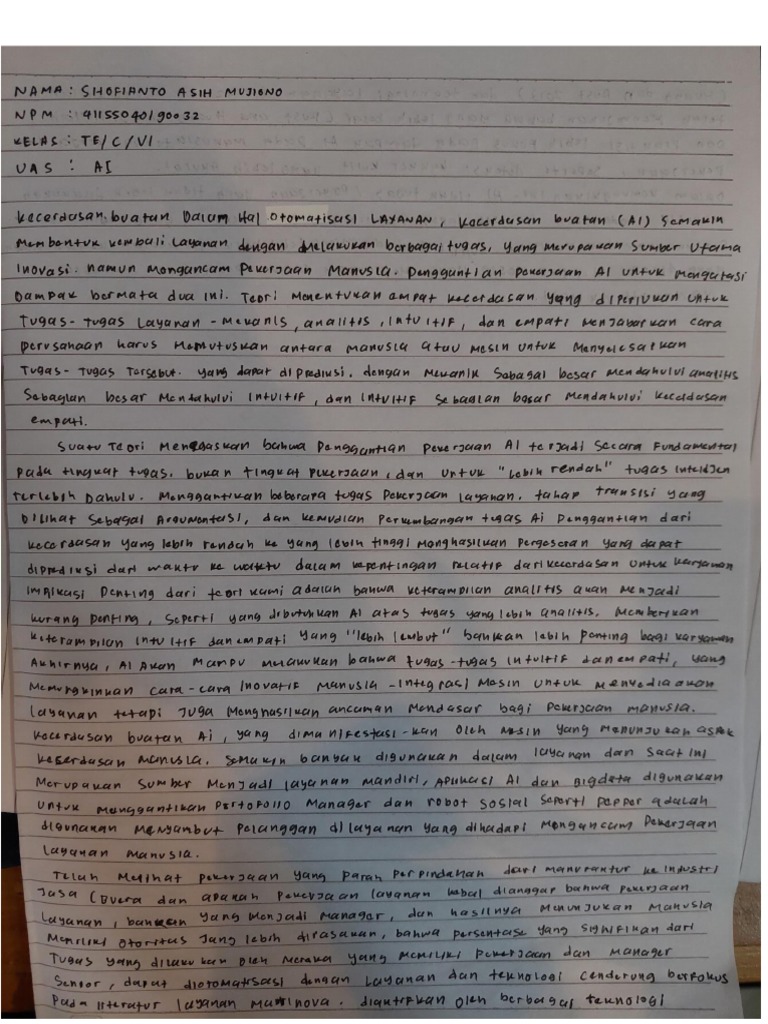 NAMA : SHOFIANTO ASIH MUJIONO
NPM : 41155040190032
KELAS : TE/C/VI
UAS : AI
Kecerdasan buatan Dalam Hal otomatisasi LAYANAN, Kecerdasan buatan (AI) Semakin
Membentuk kembali Layanan dengan Melakukan berbagai tugas, yang merupakan Sumber Utama
Inovasi. namun Mengancam Pekerjaan Manusia. Penggantian pekerjaan AI untuk Mengatasi
Dampak bermata dua ini. Teori Menentukan empat kecerdasan yang diperlukan untuk
Tugas-Tugas Layanan - Mekanis, analitis, Intuitif, dan empati Menjabarkan cara
perusahaan harus Memutuskan antara manusia atau Mesin untuk Menyelesaikan
Tugas-Tugas Tersebut. yang dapat di prediksi. dengan Mekanik Sebagai besar Mendahului analitis
Sebagian besar Mendahului Intuitif, dan Intuitif Sebagian besar Mendahului kecerdasan
empati.
Suatu Teori Menegaskan bahwa Penggantian Pekerjaan AI terjadi Secara Fundamental
Pada tingkat tugas. bukan Tingkat Pekerjaan, dan untuk "Lebih rendah" tugas Intelijen
Terlebih Dahulu. Menggantikan beberapa tugas Pekerjaan layanan. tahap transisi yang
Dilihat Sebagai Argumentasi, dan kemudian Perkembangan tugas Ai Penggantian dari
kecerdasan yang lebih rendah ke yang lebih tinggi Menghasilkan Pergeseran yang dapat
diprediksi dari waktu ke waktu dalam kepentingan relatif dari kecerdasan untuk karyawan
Implikasi Penting dari teori kami adalah bahwa keterampilan analitis akan menjadi
kurang Penting, Seperti yang dibutuhkan AI atas tugas yang lebih analitis. Memberikan
keterampilan Intuitif dan empati yang "lebih lembut" bahkan lebih Penting bagi karyawan
Akhirnya, AI Akan Mampu Melakukan bahwa tugas-tugas Intuitif dan empati, yang
Memungkinkan cara-cara Inovatif Manusia-Integrasi Mesin untuk menyediaakan
Layanan tetapi Juga Menghasilkan ancaman Mendasar bagi Pekerjaan manusia.
Kecerdasan buatan Ai, yang dimanifestasi-kan oleh Mesin yang Menunjukan aspek
kecerdasan manusia. Semakin banyak digunakan dalam layanan dan Saat ini
Merupakan Sumber Menjadi layanan mandiri, Aplikasi AI dan Bigdata digunakan
untuk Menggantikan Portofolio Manager dan robot sosial Seperti Pepper adalah
digunakan Menyambut Pelanggan di layanan yang dihadapi Mengancam Pekerjaan
Layanan manusia.
Telah Melihat pekerjaan yang Parah Perpindahan dari manufaktur ke Industri
Jasa dan apakah Pekerjaan layanan kebal dianggap bahwa pekerjaan
Layanan, bahkan yang Menjadi Manager, dan hasilnya Menunjukan Manusia
Memiliki otoritas yang lebih dirasakan, bahwa persentase yang Signifikan dari
Tugas yang dilakukan oleh Mereka yang Memiliki Pekerjaan dan Manager
Senior, dapat diotomatisasi dengan Layanan dan teknologi Cenderung berfokus
Pada literatur layanan oleh berbagai teknologi